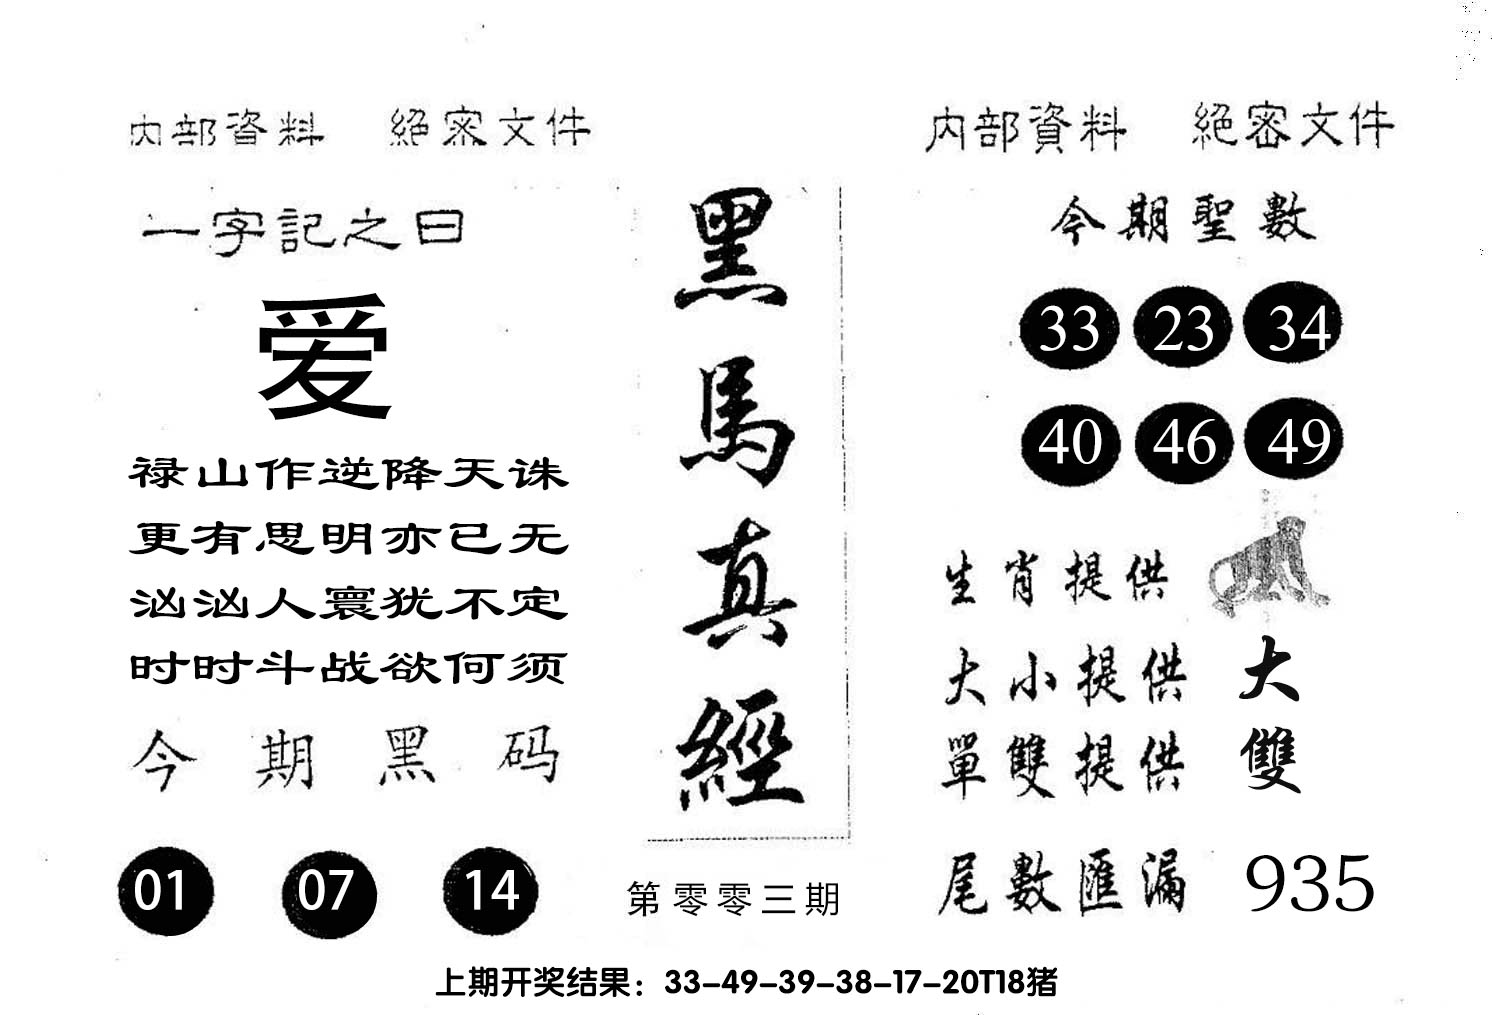 内部資料 絕密文件
一字記之曰
爱
禄山作逆降天诛
更有思明亦已无
汹汹人寰犹不定
时时斗战欲何须
今期黑码
01 07 14
黑馬真經
第零零三期
内部資料 絕密文件
今期聖數
33 23 34
40 46 49
生肖提供
大小提供 大
單雙提供 雙
尾數匯漏 935
上期开奖结果：33-49-39-38-17-20T18猪